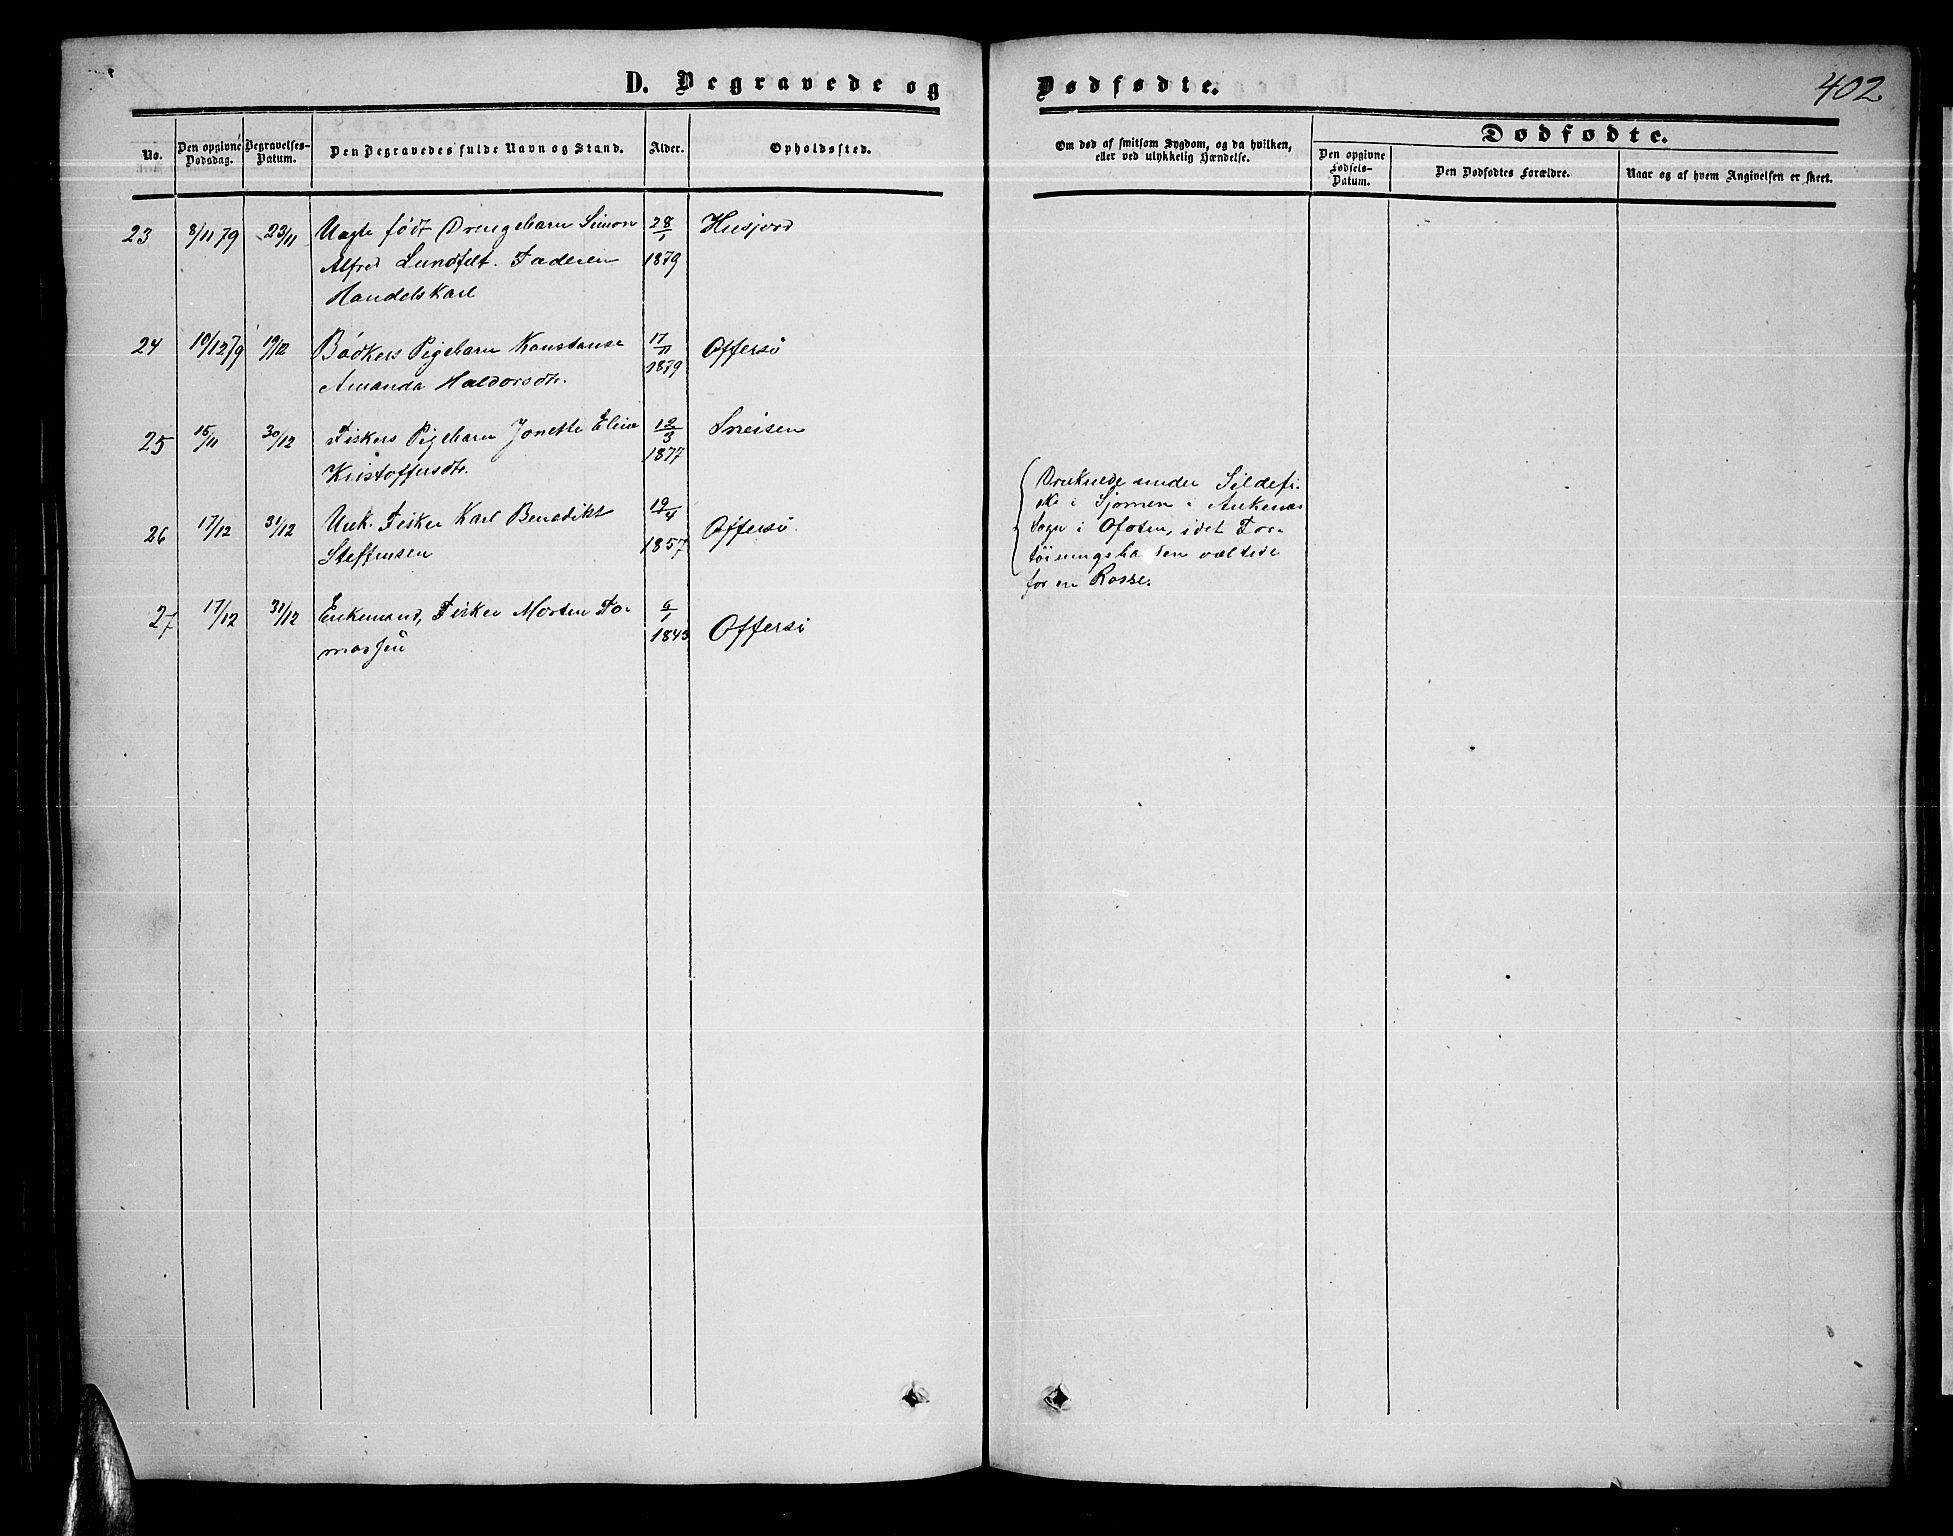 D. Begravede og Dødfødte.
402
No.
Den opgivne Dødsdag.
Begravelses-Datum.
Den Begravedes fulde Navn og Stand.
Alder.
Opholdssted.
Om død af smitsom Sygdom, og da hvilken,
eller ved ulykkelig Hændelse.
Dødfødte.
Den opgivne Fødsels-Datum.
Den Dødfødtes Forældre.
Naar og af hvem Angivelsen er skeet.
23 8/11 79 23/11 Uægte født Drengebarn Simon 28/1 Husjord
Alfred Lundfelt. Faderen 1879
Handelskarl
24 10/12 79 19/12 Bødkers Pigebarn Konstanse 17/11 Offersø
Amanda Haldorsdtr. 1879
25 15/11 30/12 Fiskers Pigebarn Jonette Eline 12/3 Sneisen
Kristoffersdtr. 1877
26 17/12 31/12 Unk. Fisker Karl Benedikt 19/4 Offersø.
Steffensen 1857
27 17/12 31/12 Enkemand, Fisker Morten To- 6/1 Offersø
massen 1843
Druknede under Sildefi-
ske i Sjomen i Ankenæs
Sogn i Ofoten, idet For-
tøiningsbaaden væltede
for en Rosse.